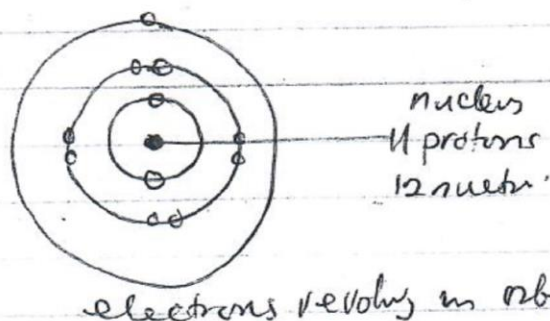 nucleus
11 protons
12 nuetr.
electrons revolving in orb